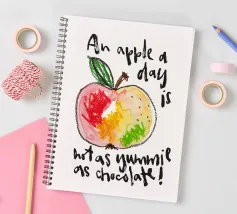 An apple a
day
is
not as yummie
as chocolate!